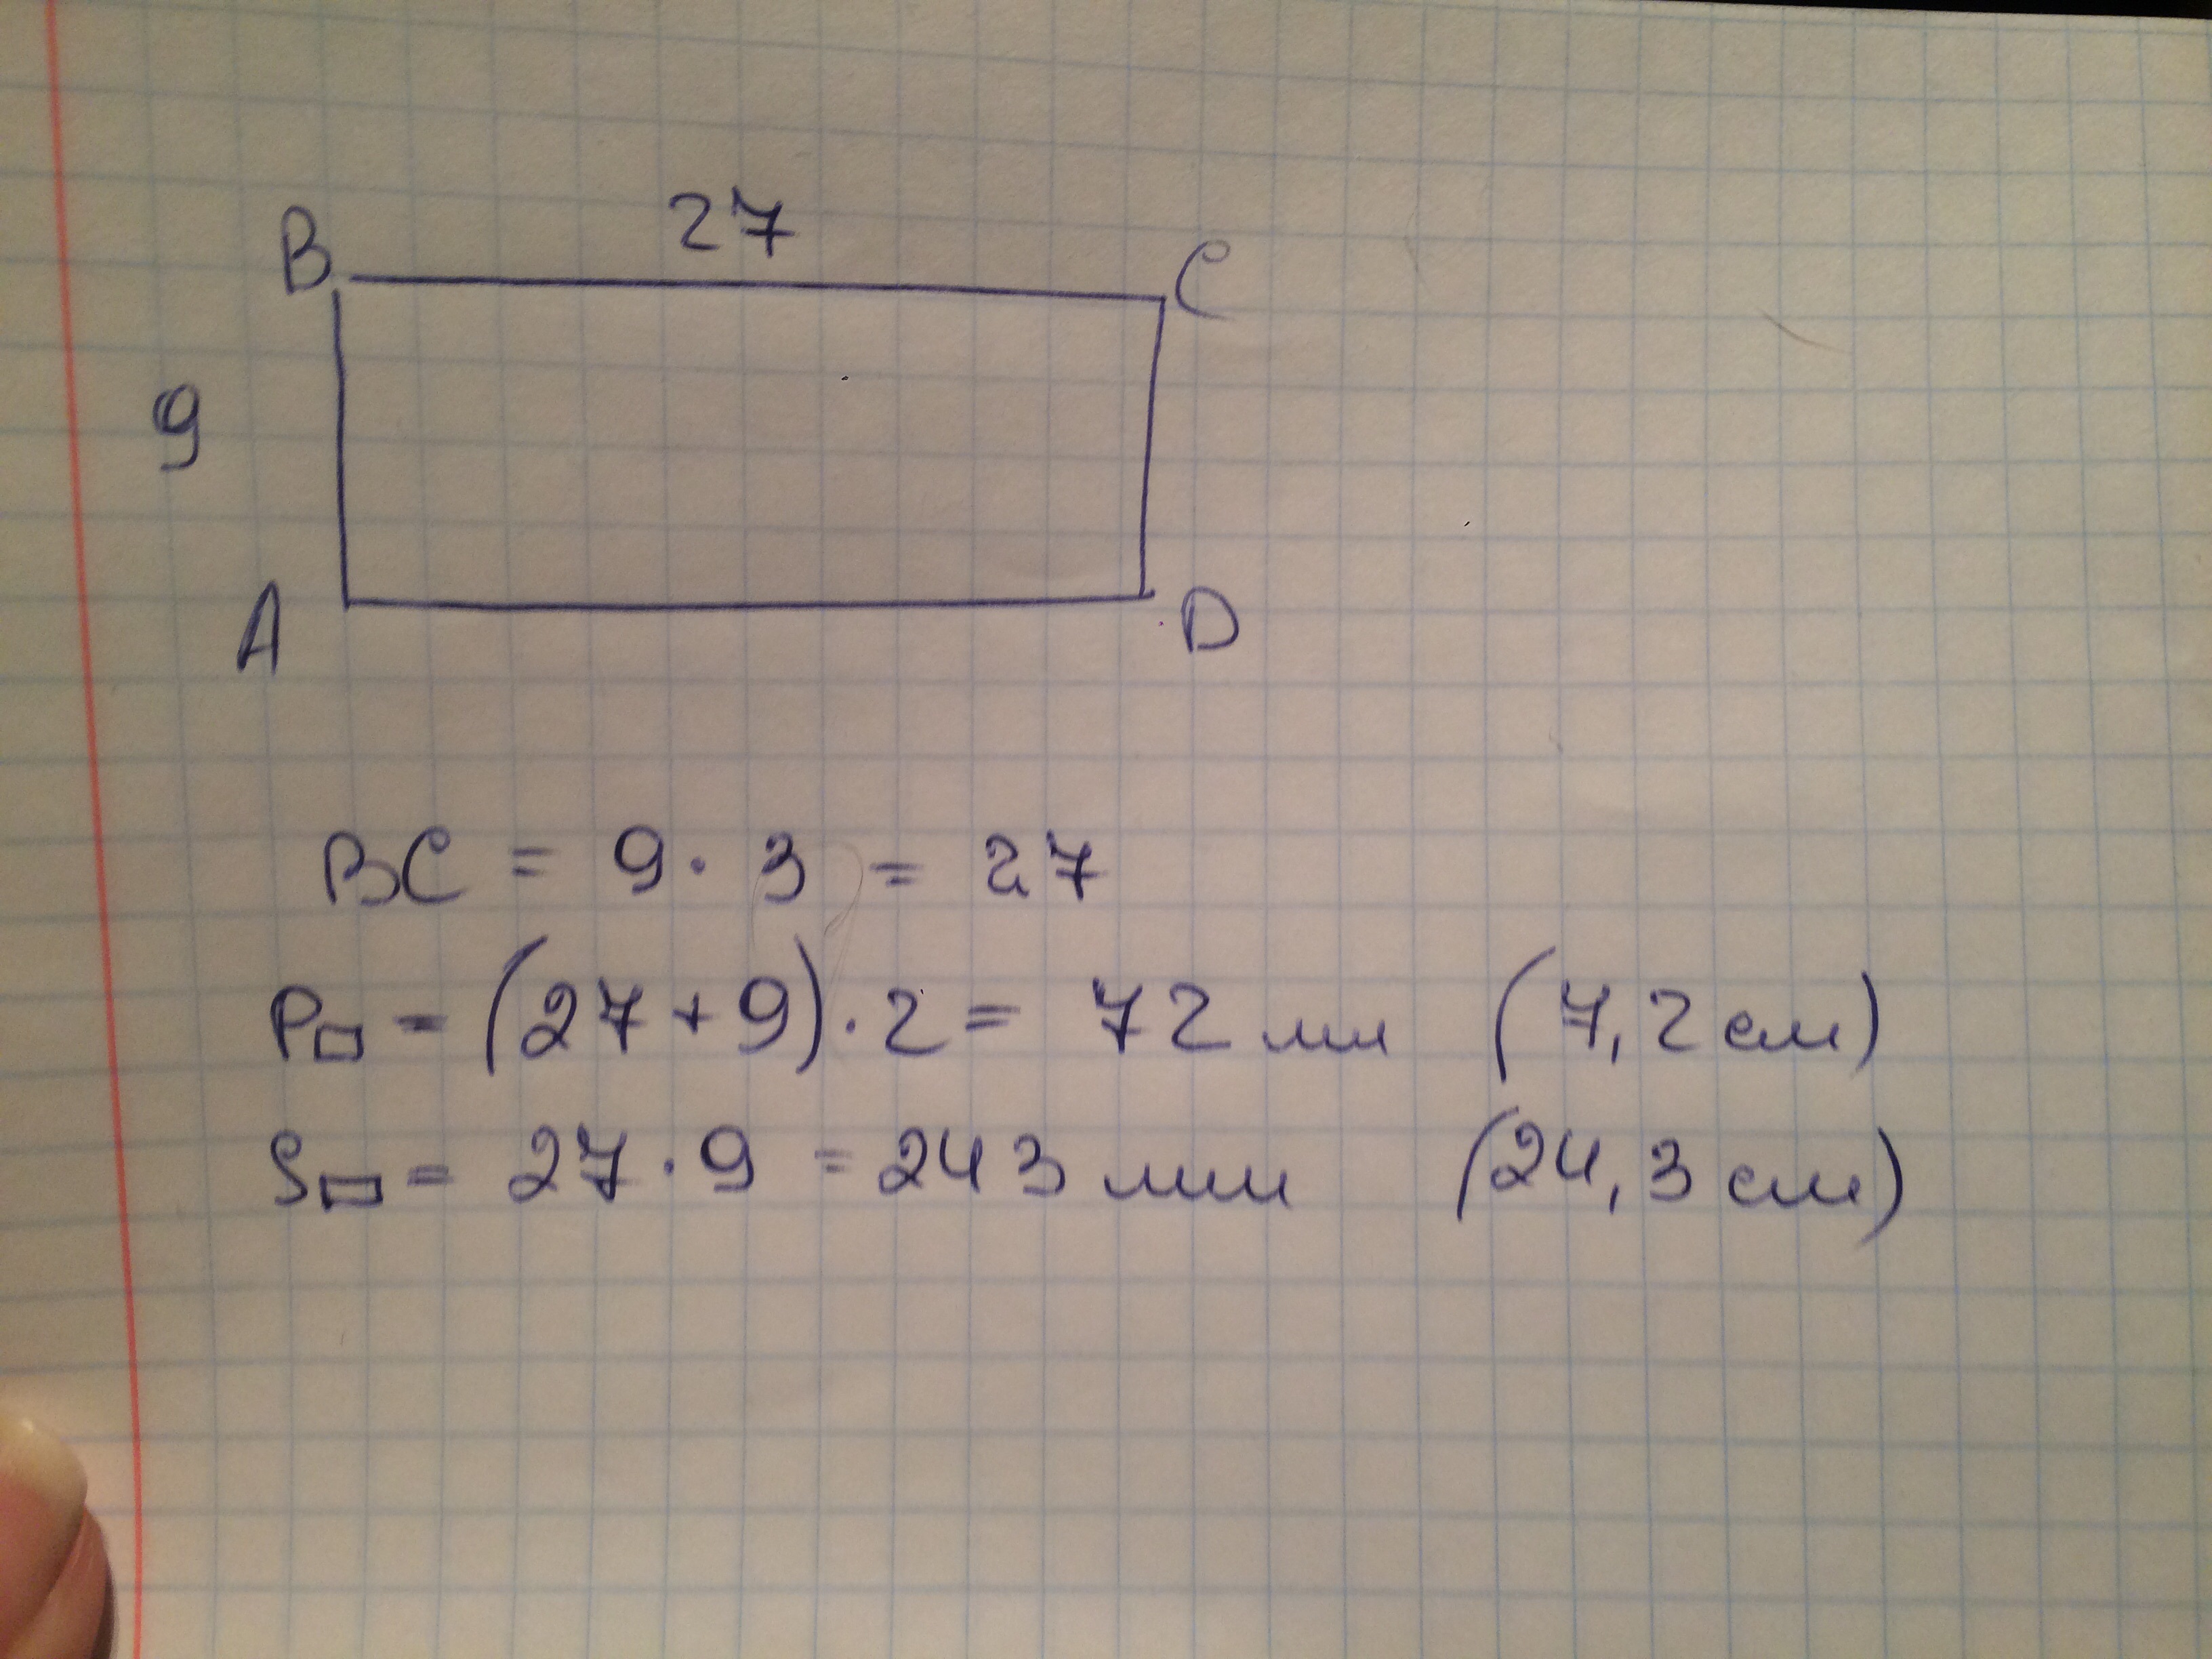 27
B C
9
A D
BC = 9 · 3 = 27
P▭ = (27+9) · 2 = 72 мм (7,2 см)
S▭ = 27 · 9 = 243 мм (24,3 см)